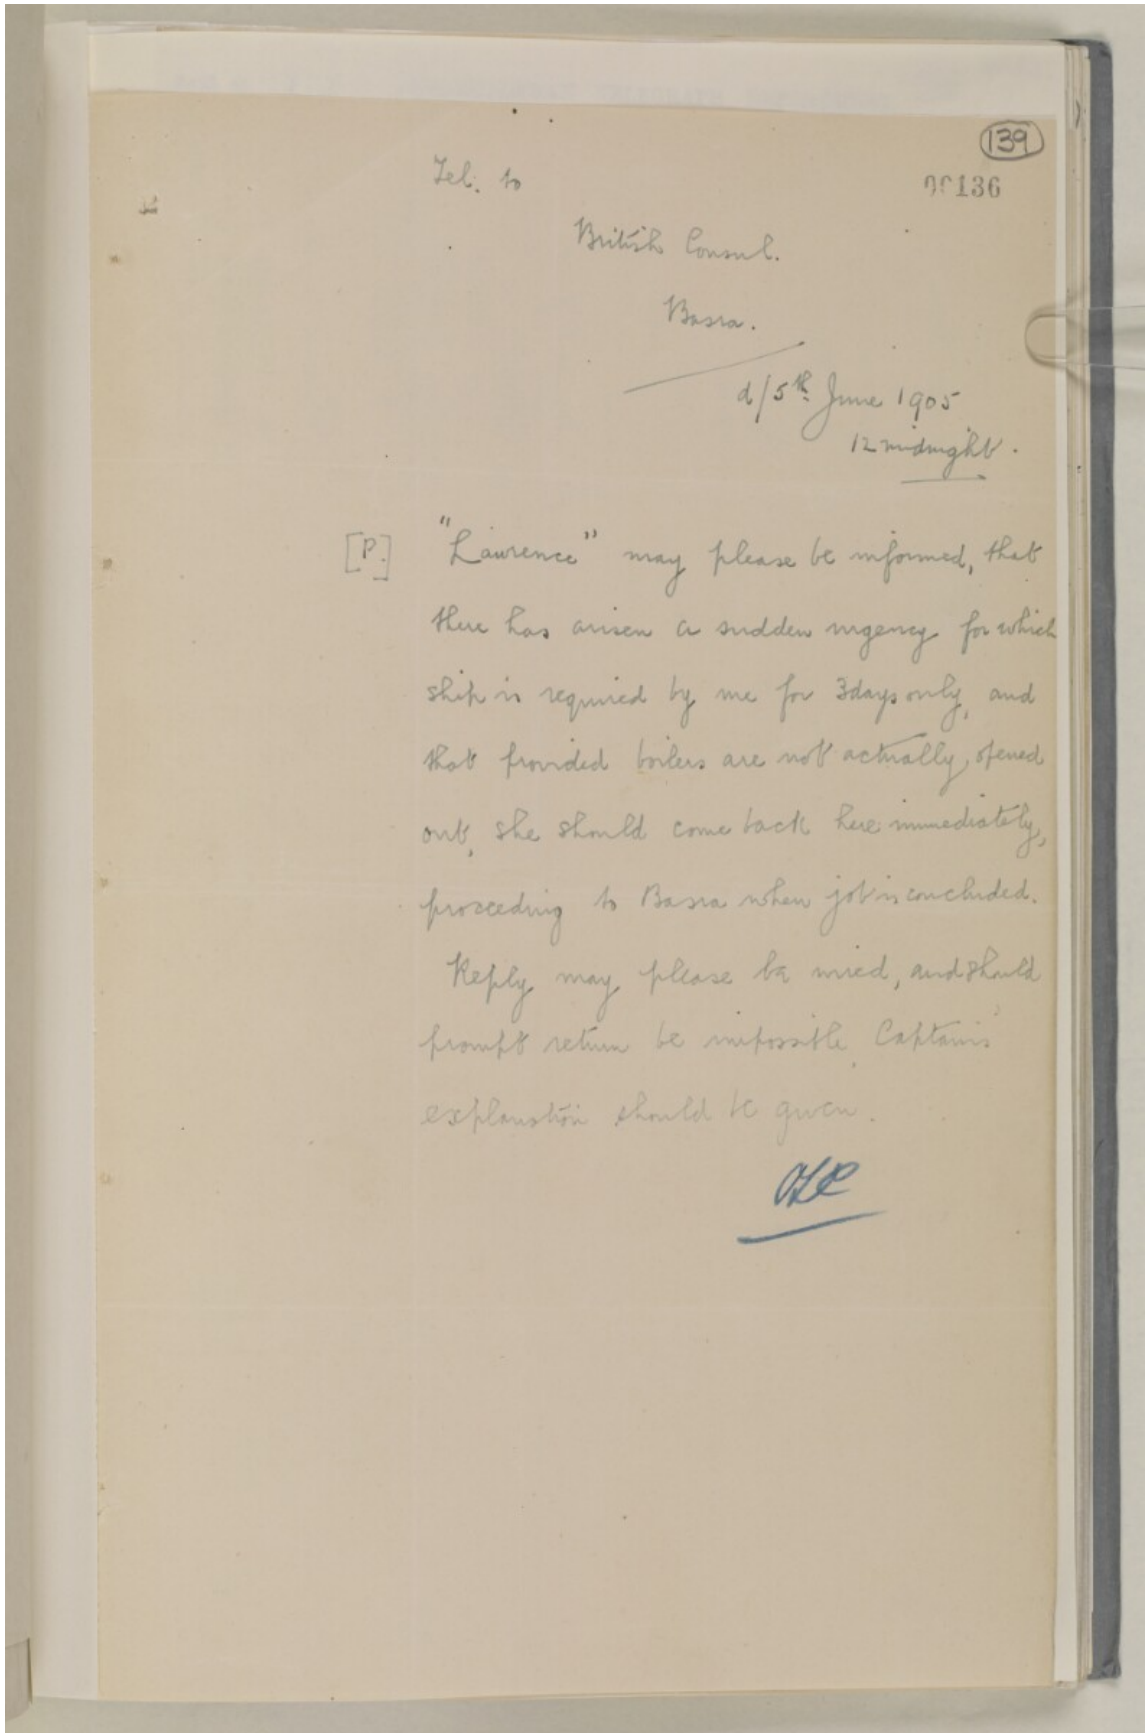 139
00136
Tel. to
British Consul.
Basra.
d/5th June 1905
12 midnight.
[P.] "Lawrence" may please be informed, that
there has arisen a sudden urgency for which
ship is required by me for 3 days only, and
that provided boilers are not actually opened
out, she should come back here immediately,
proceeding to Basra when job is concluded.
Reply may please be wired, and should
prompt return be impossible, Captain's
explanation should be given.